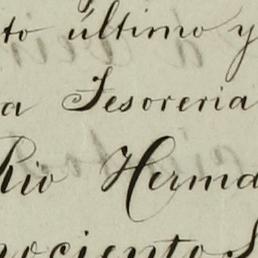 to último y
a Tesoreria
Rio Herma
nociento S